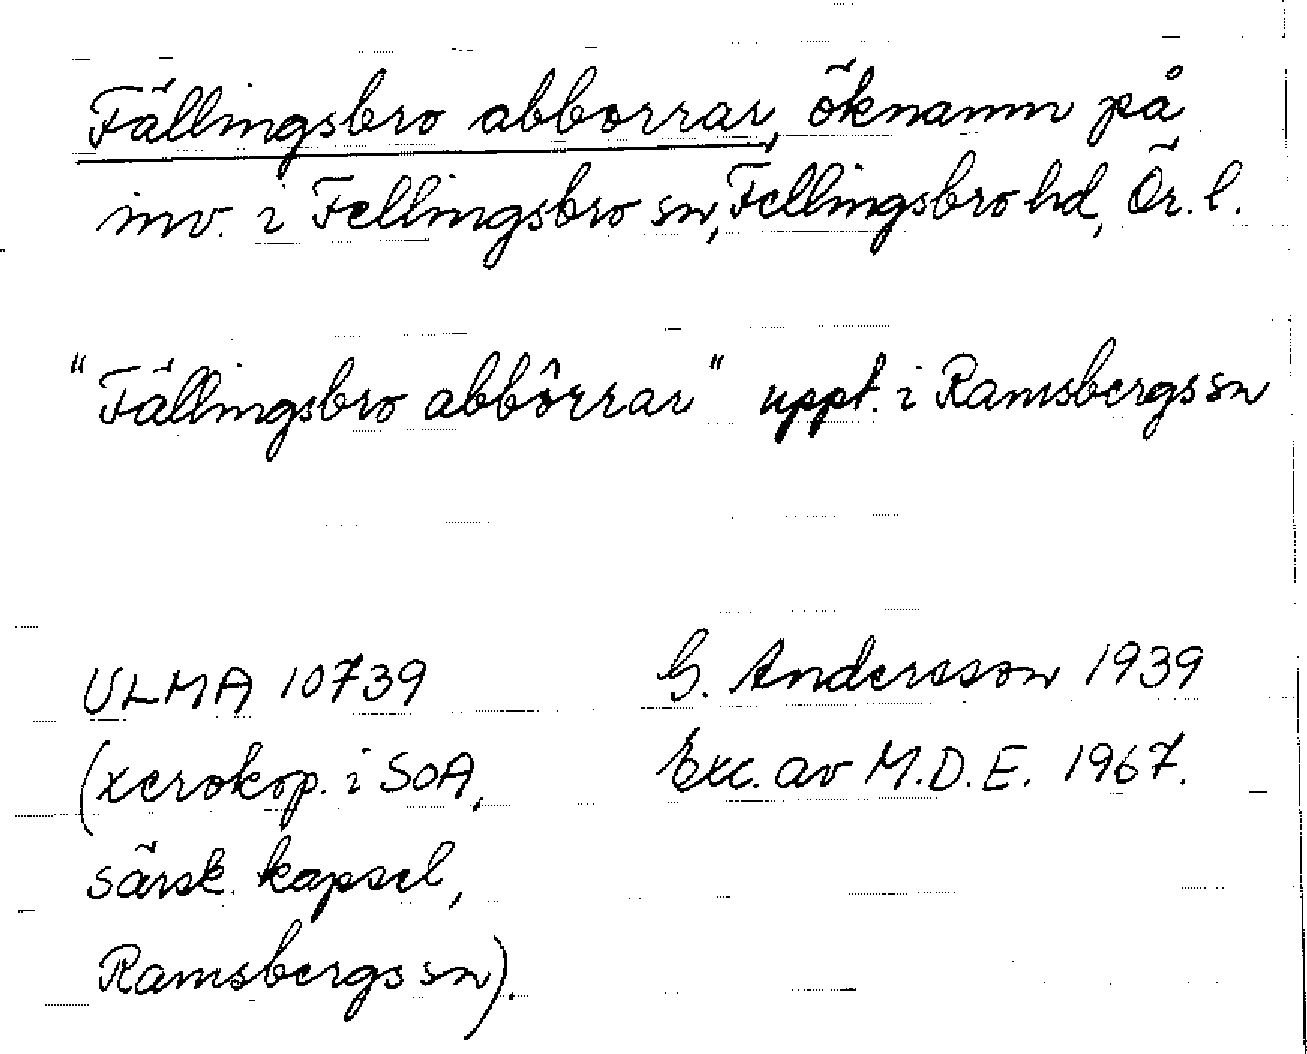 Fällingsbro abborrar, öknamn på
inv. i Fellingsbro sn, Fellingsbro hd, Ör. l.
"Fällingsbro abbôrrar" uppt. i Ramsbergs sn
ULMA 10739
(xerokop. i SOA,
särsk. kapsel,
Ramsbergs sn).
G. Andersson 1939
Exc. av M.D.E. 1967.